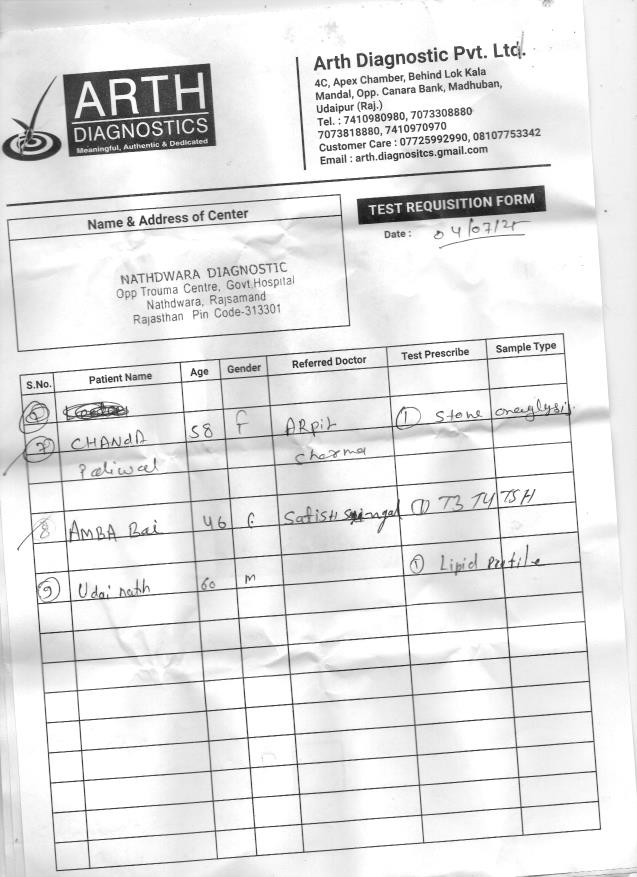 ARTH
DIAGNOSTICS
Meaningful, Authentic & Dedicated
Arth Diagnostic Pvt. Ltd.
4C, Apex Chamber, Behind Lok Kala
Mandal, Opp. Canara Bank, Madhuban,
Udaipur (Raj.)
Tel. : 7410980980, 7073308880
7073818880, 7410970970
Customer Care : 07725992990, 08107753342
Email : arth.diagnositcs.gmail.com
Name & Address of Center
TEST REQUISITION FORM
Date : 04/07/25
NATHDWARA DIAGNOSTIC
Opp Trouma Centre, Govt.Hospital
Nathdwara, Rajsamand
Rajasthan Pin Code-313301
S.No. Patient Name Age Gender Referred Doctor Test Prescribe Sample Type
7 CHANDA 58 F ARpit ① Stone
Paliwal Sharma
8 AMBA Bai 46 F Satish ① T3 T4 TSH
9 Udai nath 60 m ① Lipid Profile